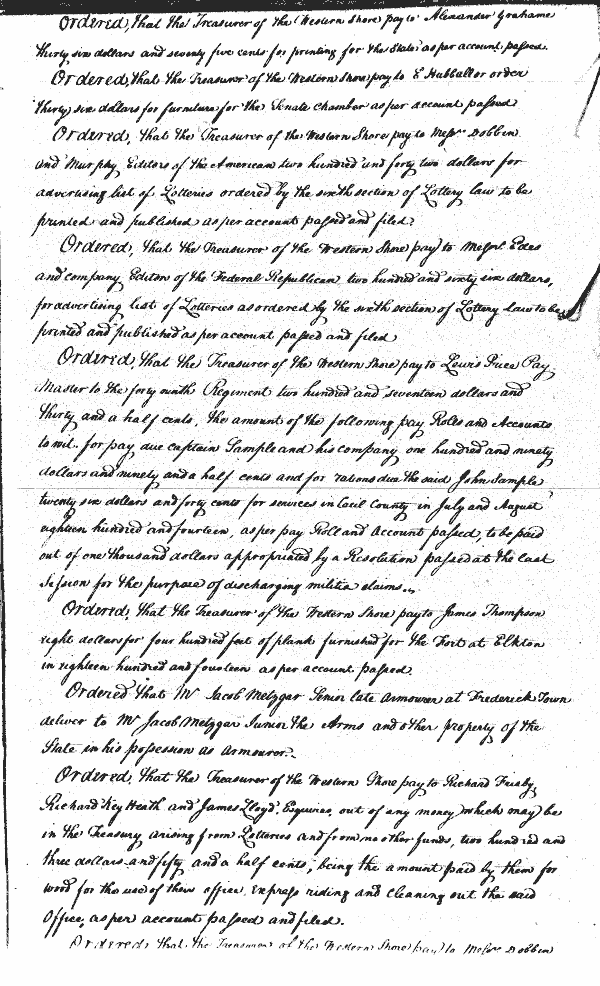 Ordered, that the Treasurer of the Western Shore pay to Alexander Grahame
thirty six dollars and seventy five cents for printing for the State as per account passed.
Ordered, that the Treasurer of the Western Shore pay to E Hubball or order
thirty six dollars for furniture for the Senate chamber as per account passed
Ordered, that the Treasurer of the Western Shore pay to Messrs Dobbin
and Murphy Editors of the American two hundred and forty two dollars for
advertising list of Lotteries ordered by the sixth section of Lottery law to be
printed and published as per account passed and filed.
Ordered, that the Treasurer of the Western Shore pay to Messrs. Edes
and company Editors of the Federal Republican two hundred and sixty six dollars,
for advertising list of Lotteries as ordered by the sixth section of Lottery law to be
printed and published as per account passed and filed
Ordered, that the Treasurer of the Western Shore pay to Lewis Price Pay
Master to the forty ninth Regiment two hundred and seventeen dollars and
thirty and a half cents, the amount of the following pay Roles and Accounts
to wit. for pay due captain Sample and his company one hundred and ninety
dollars and ninety and a half cents and for rations due the said John Sample
twenty six dollars and forty cents for services in Cecil County in July and August
eighteen hundred and fourteen, as per pay Roll and Account passed, to be paid
out of one thousand dollars appropriated by a Resolution passed at the last
Session for the purpose of discharging militia claims.
Ordered, that the Treasurer of the Western Shore pay to James Thompson
eight dollars for four hundred feet of plank furnished for the Fort at Elkton
in eighteen hundred and fourteen as per account passed.
Ordered that Mr Jacob Metzgar Senior late Armourer at Frederick Town
deliver to Mr Jacob Metzgar Junior the Arms and other property of the
State in his possession as Armourer.
Ordered, that the Treasurer of the Western Shore pay to Richard Frisby,
Richard Key Heath and James Lloyd, Esquires, out of any money which may be
in the Treasury arising from Lotteries and from no other funds, two hundred and
three dollars and fifty and a half cents, being the amount paid by them for
wood for the use of their office, Express riding and cleaning out the said
Office, as per account passed and filed.
Ordered, that the Treasurer of the Western Shore pay to Messrs Dobbin